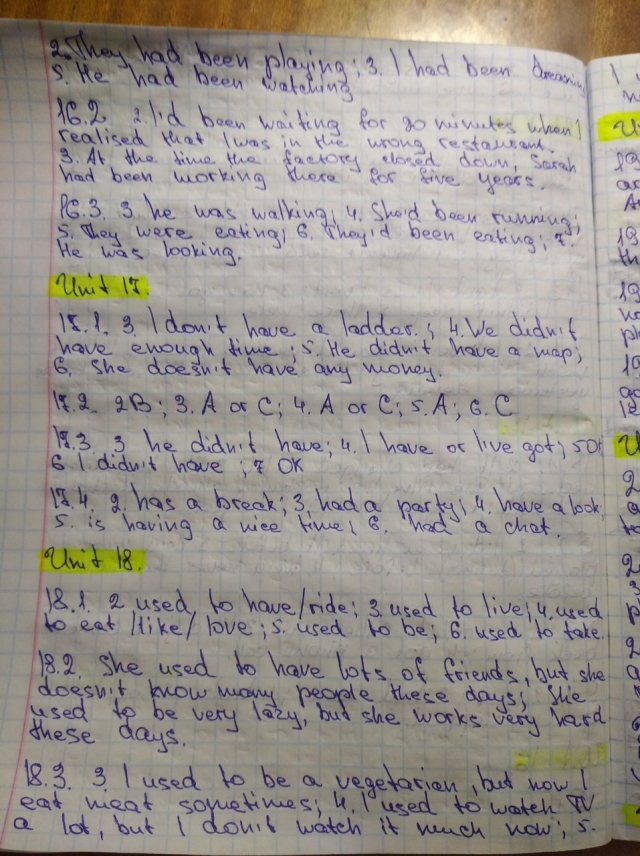 2. They had been playing; 3. I had been dreaming
5. He had been watching
16.2 2. I'd been waiting for 20 minutes when I
realised that I was in the wrong restaurant.
3. At the time the factory closed down, Sarah
had been working there for five years.
16.3. 3. he was walking; 4. She'd been running;
5. They were eating; 6. They'd been eating; 7.
He was looking.
Unit 17.
17.1. 3. I don't have a ladder.; 4. We didn't
have enough time; 5. He didn't have a map;
6. She doesn't have any money.
17.2. 2B; 3. A or C; 4. A or C; 5. A; 6. C
17.3. 3 he didn't have; 4. I have or I've got; 5 OK
6. I didn't have; 7 OK
17.4. 2. has a break; 3. had a party; 4. have a look
5. is having a nice time; 6. had a chat.
Unit 18.
18.1. 2 used to have/ride; 3. used to live; 4. used
to eat /like/ love; 5. used to be; 6. used to take
18.2. She used to have lots of friends, but she
doesn't know many people these days; She
used to be very lazy, but she works very hard
these days.
18.3. 3. I used to be a vegetarian, but now I
eat meat sometimes; 4. I used to watch TV
a lot, but I don't watch it much now; 5.